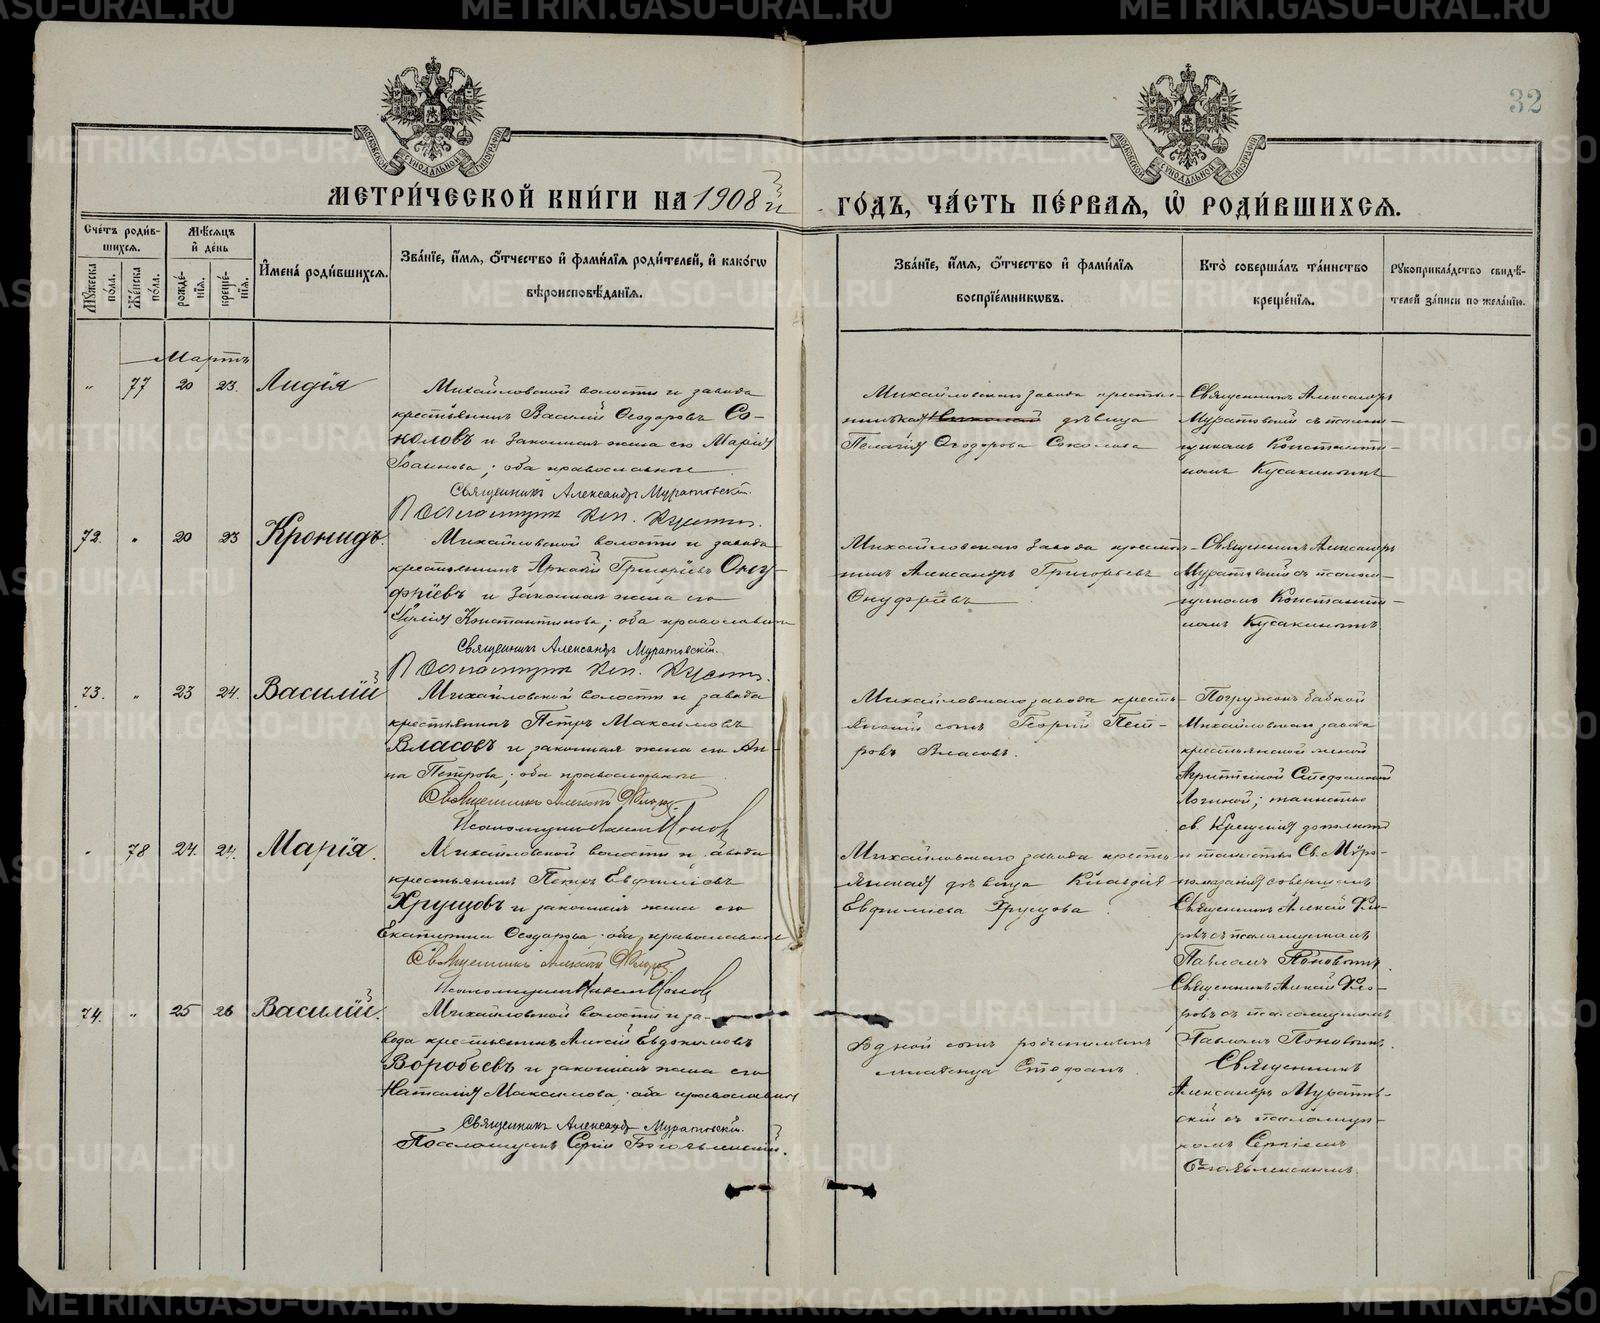 32
МОСКОВСКОЙ СѴНОДАЛЬНОЙ ТИПОГРАФІИ
МОСКОВСКОЙ СѴНОДАЛЬНОЙ ТИПОГРАФІИ
МЕТРИ́ЧЕСКОЙ КНИ́ГИ НА 1908й ГО́ДЪ, ЧА́СТЬ ПЕ́РВАЯ, Ѡ РОДИ́ВШИХСЯ.
Счетъ роди́в-
шихся.
Мужеска пола.
Женска пола.
Мѣсяцъ и день
рожде-
нія.
креще-
нія.
Имена роди́вшихся.
Зва́ніе, имя, отчество и фамилія родителей, и какогω
вѣроисповѣданія.
Зва́ніе, имя, отчество и фамилія
воспріемникωвъ.
Кто совершалъ таинство
крещенія.
Рукоприкладство свидѣ-
телей записи по желанію.
Мартъ
" 77 20 23. Лидія
Михайловской волости и завода
крестьянинъ Василій Ѳеодоровъ Со-
коловъ и законная жена его Марія
Іоаннова; оба православные
Священникъ Александръ Муратовскій.
Михайловскаго завода крестья-
нинская Николай дѣвица
Пелагія Ѳеодорова Соколова
Священникъ Александръ
Муратовскій съ псалом-
щикомъ Константи-
номъ Кусакинымъ
72. " 20 23 Кронидъ.
Михайловской волости и завода
крестьянинъ Аркадій Григорьевъ Ону-
фріевъ и законная жена его
Юлія Константинова; оба православные
Священникъ Александръ Муратовскій.
Михайловскаго завода крестья-
нинъ Александръ Григорьевъ
Онуфріевъ
Священникъ Александръ
Муратовскій съ псалом-
щикомъ Константи-
номъ Кусакинымъ
73. " 23 24. Василій
Михайловской волости и завода
крестьянинъ Петръ Максимовъ
Власовъ и законная жена его Ан-
на Петрова; оба православные
Священникъ Алексій Флоровъ.
Псаломщикъ Павелъ Поповъ
Михайловскаго завода кресть-
янскій сынъ Георгій Пет-
ровъ Власовъ.
Погружонъ бабкой
Михайловскаго завода
крестьянской женой
Стефановой
таинство
св. Крещенія дополнено
и таинство Св. Мѵро-
помазанія совершилъ
Священникъ Алексій Фло-
ровъ съ псаломщикомъ
Павломъ Поповымъ.
" 78 24. 24. Марія.
Михайловской волости и завода
крестьянинъ Евфиміевъ
Хрущовъ и законная жена его
Екатерина Ѳеодорова; оба православные
Священникъ Алексій Флоровъ.
Псаломщикъ Павелъ Поповъ
Михайловскаго завода кресть-
янская дѣвица Клавдія
Евфиміева Хрущова.
Священникъ Алексій Фло-
ровъ съ псаломщикомъ
Павломъ Поповымъ.
74. " 25 26 Василій.
Михайловской волости и за-
вода крестьянинъ Алексій Евдокимовъ
Воробьевъ и законная жена его
Наталія Максимова; оба православные
Священникъ Александръ Муратовскій.
Псаломщикъ Сергій Богоявленскій.
Родной сынъ родителямъ
младенца Стефанъ.
Священникъ
Александръ Муратов-
скій съ псаломщи-
комъ Сергіемъ
Богоявленскимъ.
METRIKI.GASO-URAL.RU